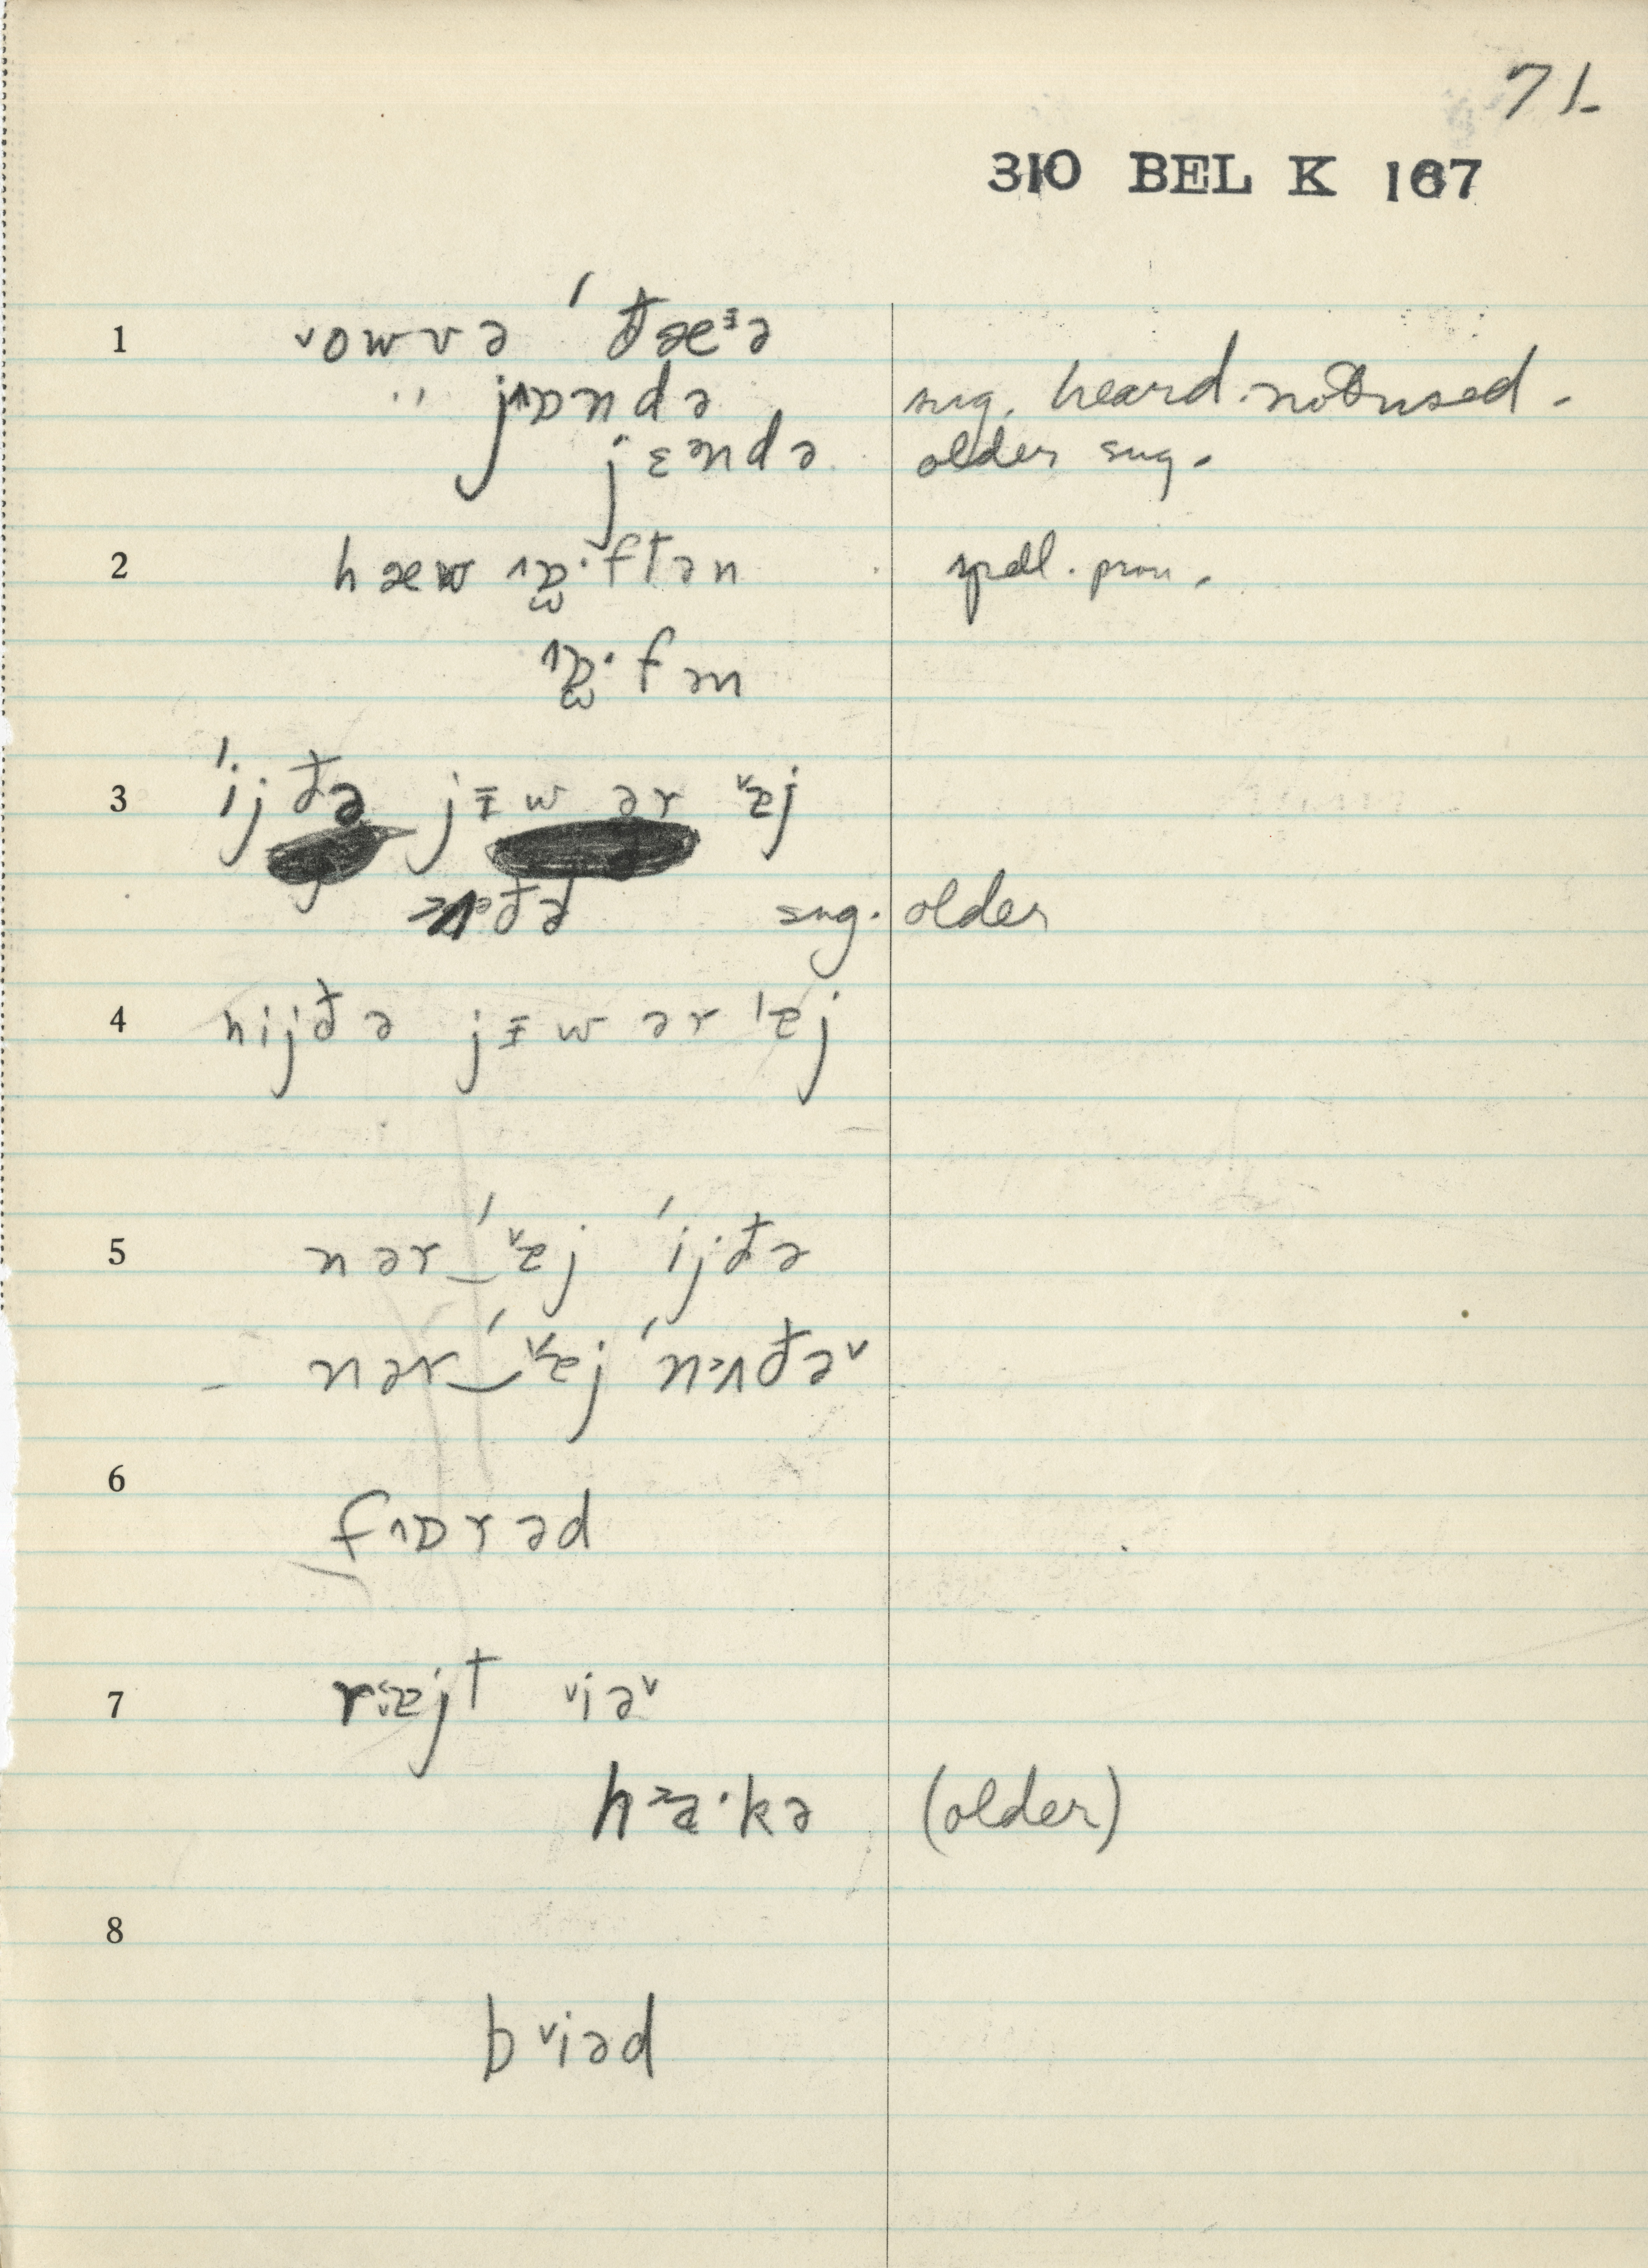 71
310 BEL K 167
1 ˅owvə ˈđæᵻə
" j˄ɒndə sug. heard not used.
jɛəndə older sug.
2 hæw ˄ɒ̯·ftən spell. pron.
˄ɒ̯·fən
3 ˈijđə jɪ̵wər ˅ɐj
đə sug. older
4 nijđə jɪ̵wər ˈɐj
5 nər‿ˈ˅ɐj ˈijđə
nər‿ˈ˅ɐj ˈn˃ʌđə˅
6 f˄ɒrəd
7 r˂ɐjt ˅iə˅
h˃a·kə (older)
8
b˅iəd